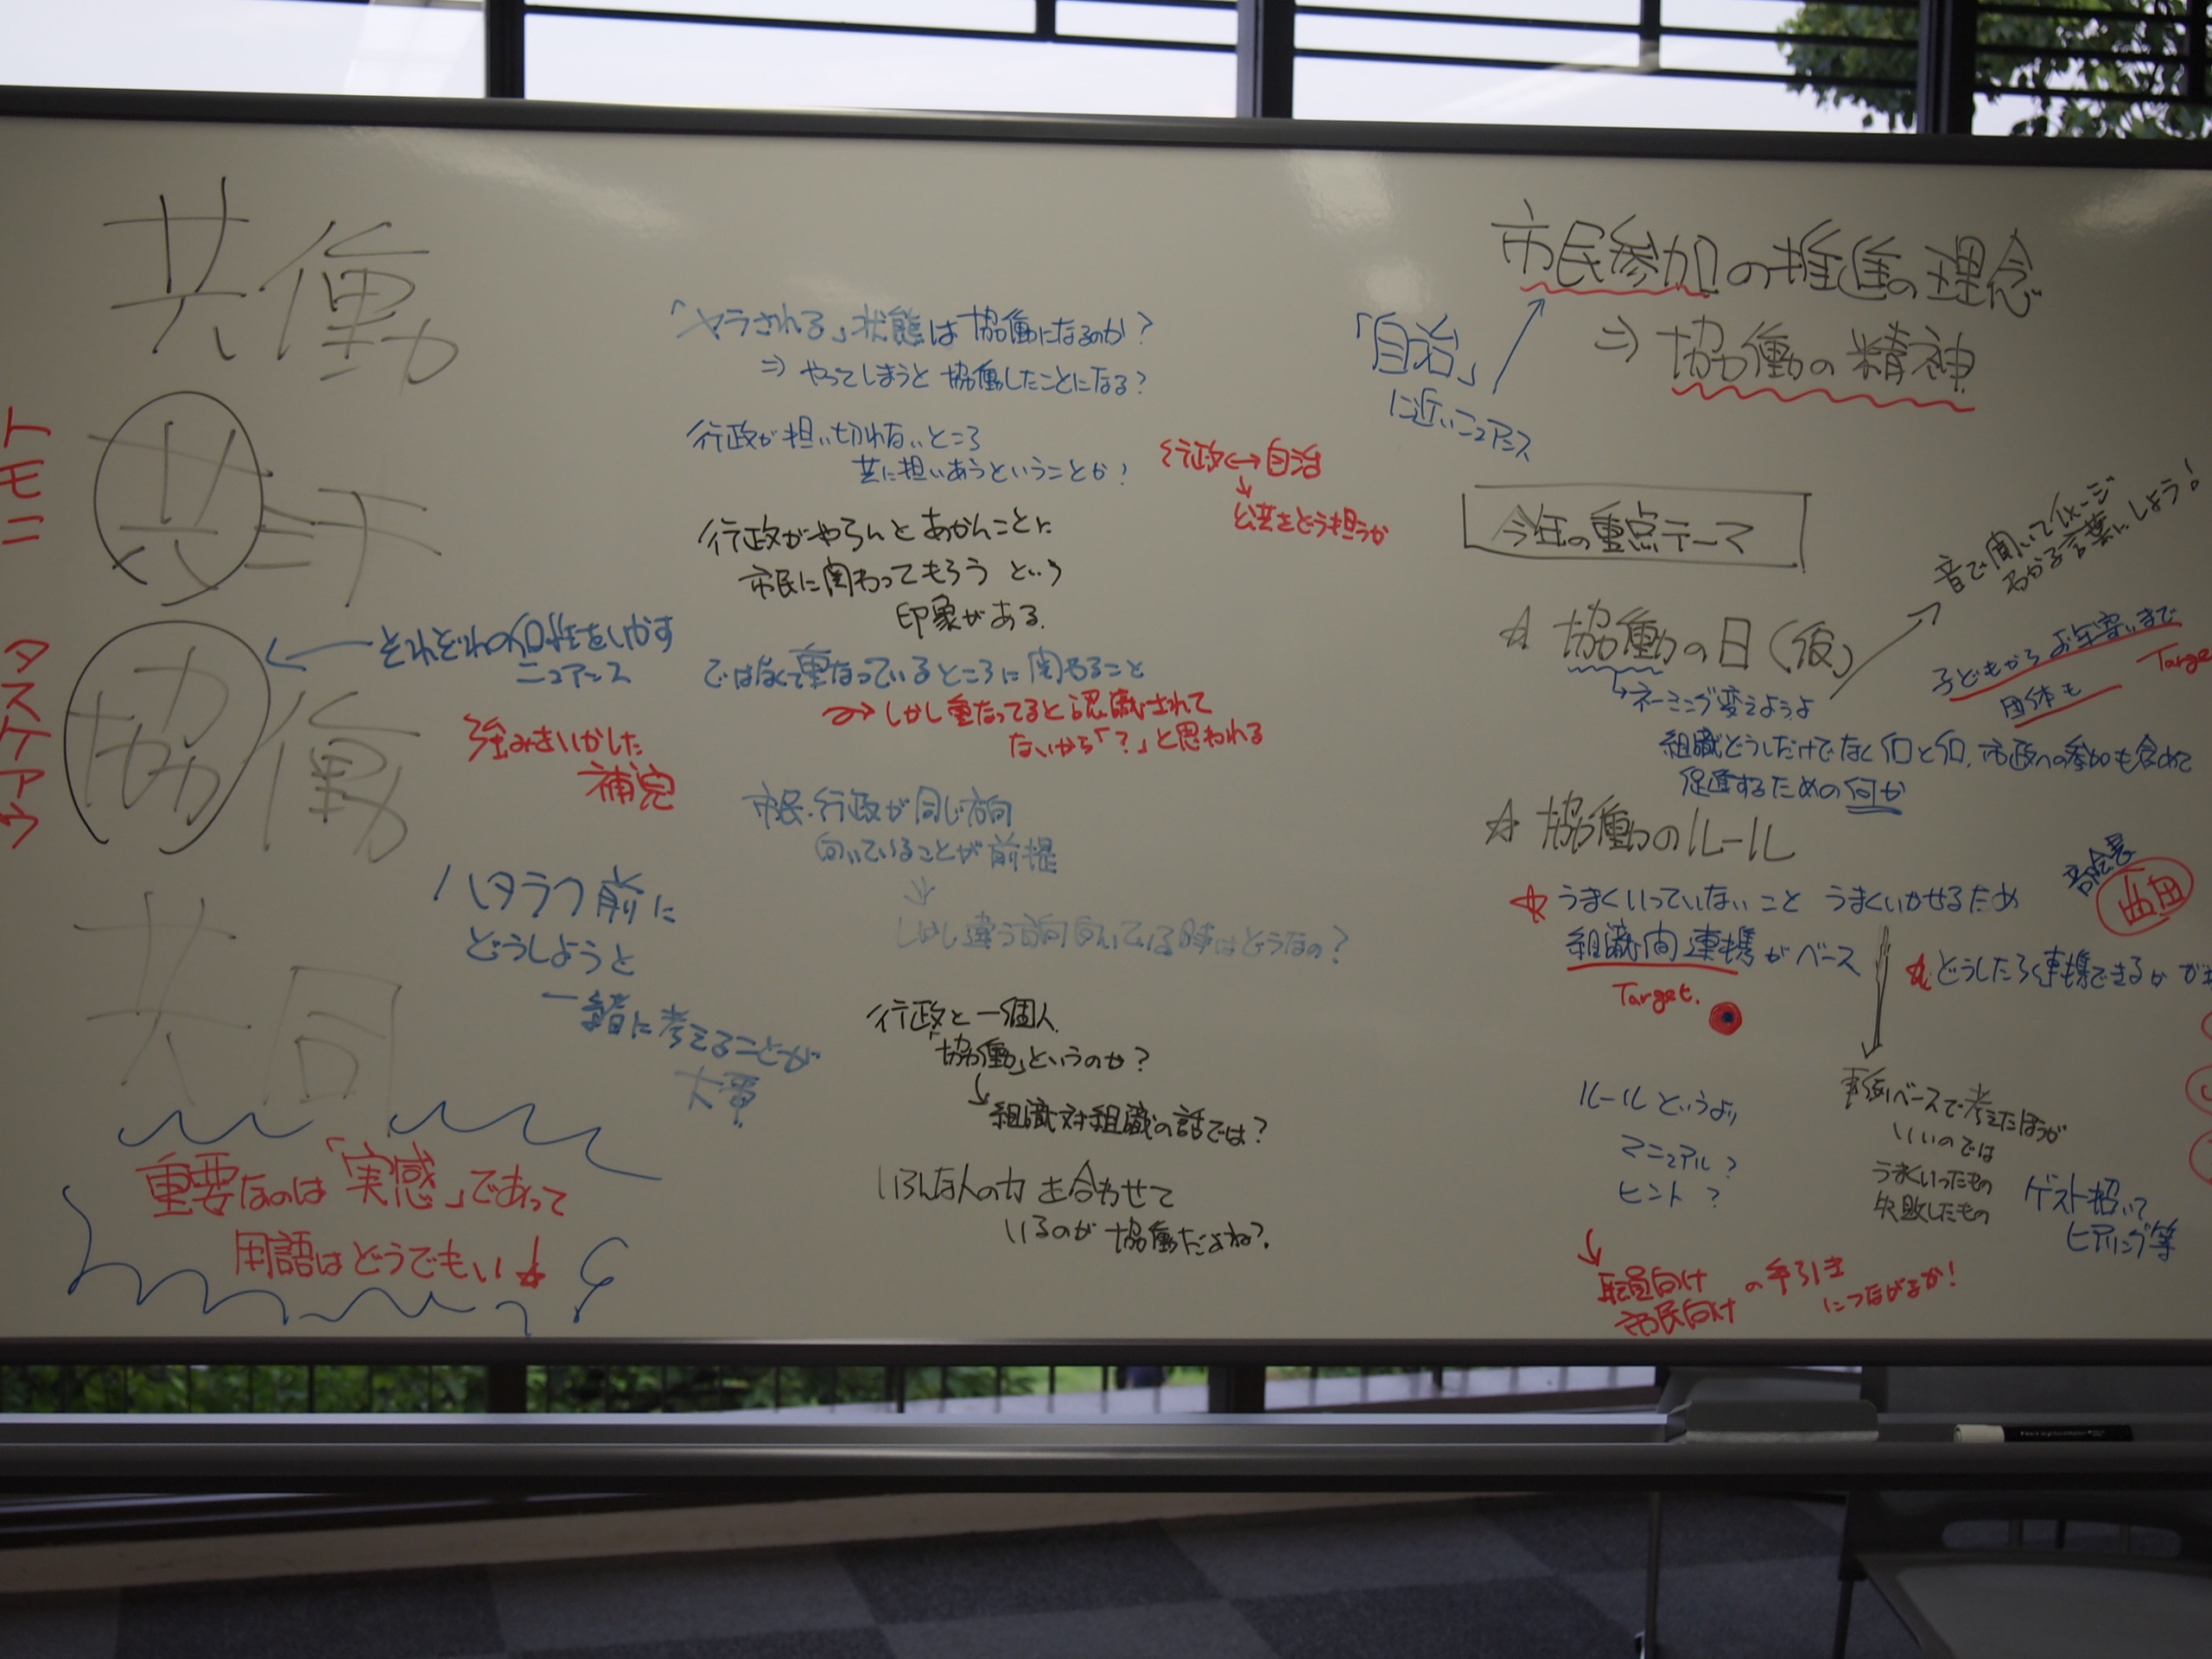 共働
トモニ
共=于
タスケアウ
協働
それぞれの個性をいかす
ニュアンス
強みをいかした
補完
共同
ハタラク前に
どうしようと
一緒に考えることが
大事
重要なのは「実感」であって
用語はどうでもいい
「ヤラされる」状態は協働になるのか?
⇒ やってしまうと協働したことになる?
行政が担い切れないところ
共に担いあうということか!
行政↔自治
↓
公共をどう担うか
行政がやらんとあかんことに
市民に関わってもらう という
印象がある.
ではなくて重なっているところに関わること
しかし重なってると認識されて
ないから「?」と思われる
市民・行政が同じ方向
向いていることが前提
しかし違う方向向いている時はどうなの?
行政と一個人.
「協働」というのか?
↳ 組織対組織の話では?
いろんな人の力を合わせて
いるのが協働だよね?.
市民参加の推進の理念
⇒ 協働の精神
「自治」
に近いニュアンス
今年の重点テーマ
☆ 協働の日(仮)
↳ネーミング変えようよ
音で聞いてイメージ
わかる言葉にしよう!
子どもからお年寄りまで
団体も
組織どうしだけでなく個と個、市政への参加も含めて
促進するための何か
☆ 協働のルール
部会長
☆ うまくいっていないこと うまくいかせるため
組織間連携がベース
Target.
☆ どうしたら連携できるか
ルールというより
マニュアル?
ヒント?
↓
職員向け
市民向け
の手引き
につながるか!
事例ベースで考えたほうが
いいのでは
うまくいったもの
失敗したもの
ゲスト招いて
ヒアリング等